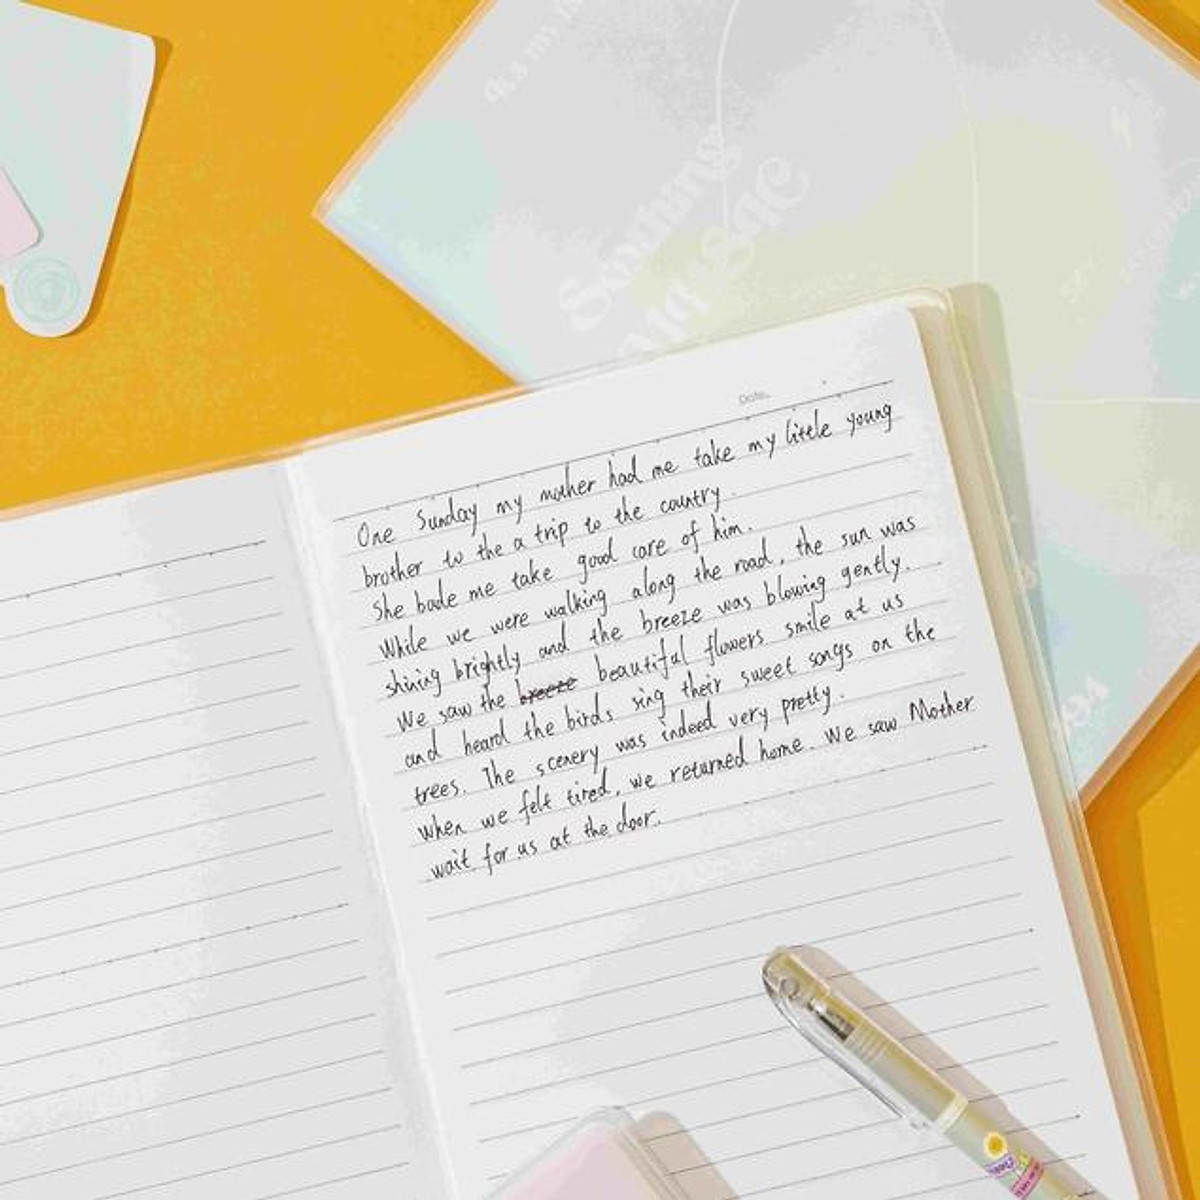 Date.
One Sunday my mother had me take my little young
brother to the a trip to the country.
She bade me take good care of him.
While we were walking along the road, the sun was
shining brightly and the breeze was blowing gently.
We saw the breeze beautiful flowers smile at us
and heard the birds sing their sweet songs on the
trees. The scenery was indeed very pretty.
When we felt tired, we returned home. We saw Mother
wait for us at the door.